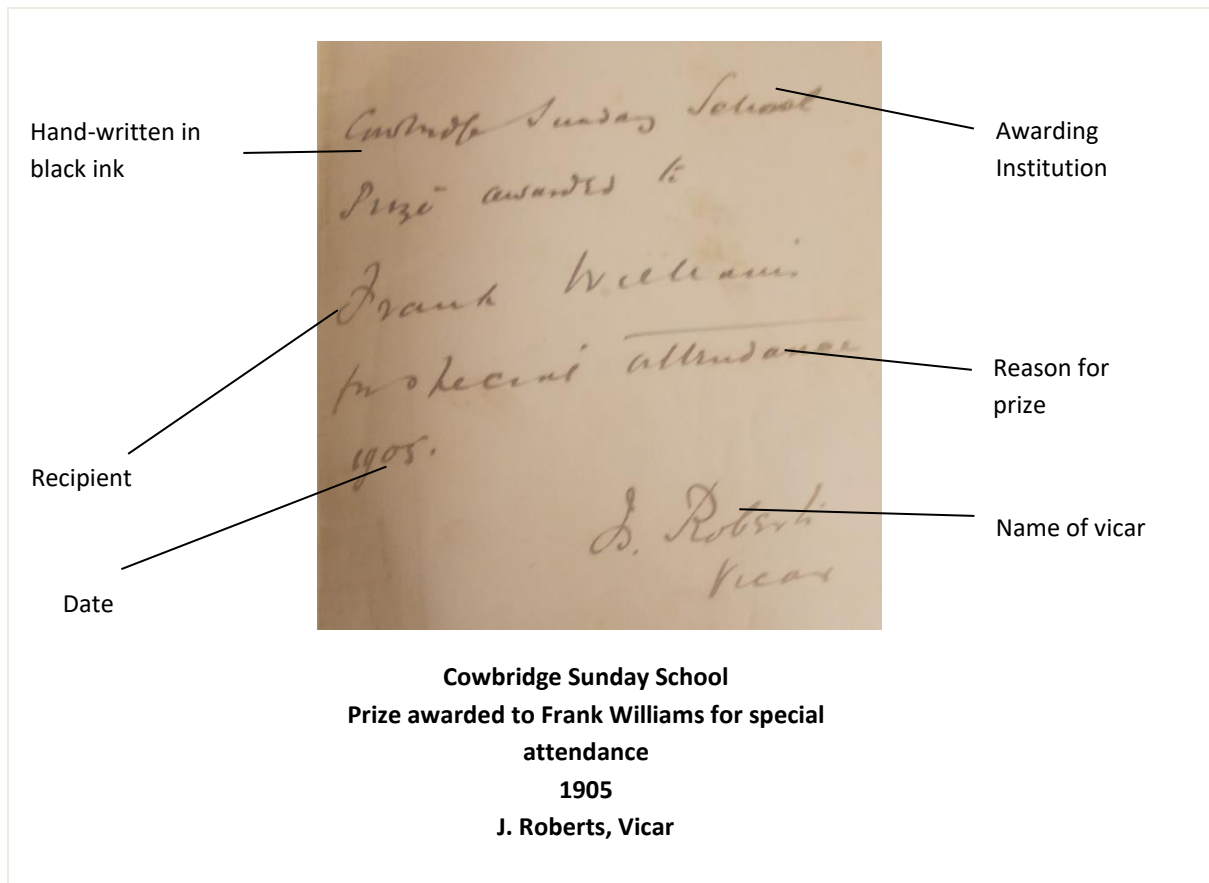 Hand-written in
black ink
Cowbridge Sunday School
Prize awarded to
Frank Williams
for special attendance
1905.
J. Roberts
Vicar
Recipient
Date
Awarding
Institution
Reason for
prize
Name of vicar
Cowbridge Sunday School
Prize awarded to Frank Williams for special
attendance
1905
J. Roberts, Vicar